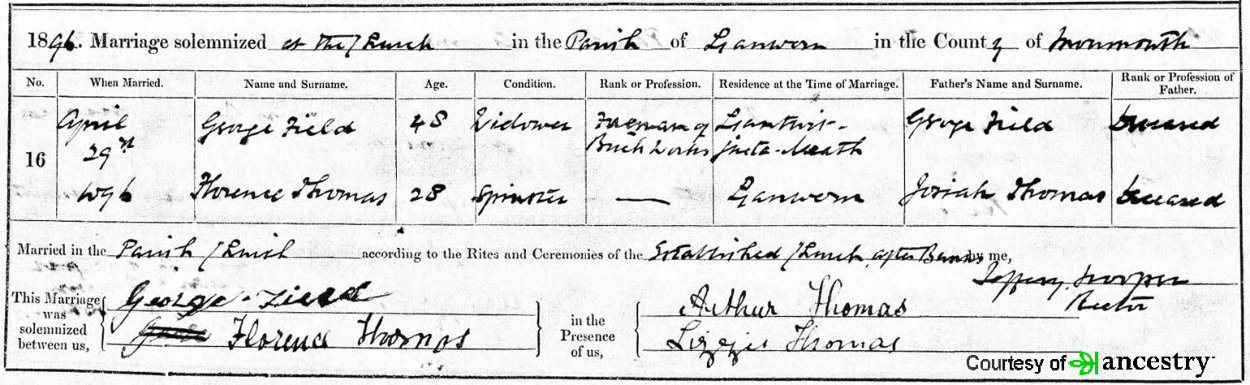 1896. Marriage solemnized at the Church in the Parish of Llanwern in the County of Monmouth
No. When Married. Name and Surname. Age. Condition. Rank or Profession. Residence at the Time of Marriage. Father's Name and Surname. Rank or Profession of Father.
16 April 29th 1896
George Field 48 Widower Foreman of Brick Works Llantwit-juxta-Neath George Field deceased
Florence Thomas 28 Spinster — Llanwern Josiah Thomas deceased
Married in the Parish Church according to the Rites and Ceremonies of the Established Church, after Banns by me,
Rector
This Marriage was solemnized between us,
George Field
Florence Thomas
in the Presence of us,
Arthur Thomas
Lizzie Thomas
Courtesy of ancestry